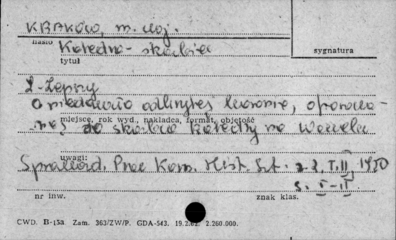 KRAKÓW, m. woj.
hasło Katedra - skarbiec
sygnatura
tytuł
L. Lepszy
O niedawno odkrytej koronie, oparowa-
miejsce, rok wyd., nakładca, format, objętość
nej do skarbca katedry na Wawelu
uwagi:
Sprawozd. Prac Kom. Hist. Szt. z. 2. T. II, 1930
s. I-II
nr inw.
znak klas.
CWD. B-15a Zam. 363/ZW/P. GDA-543. 19.2.62. 2.260.000.